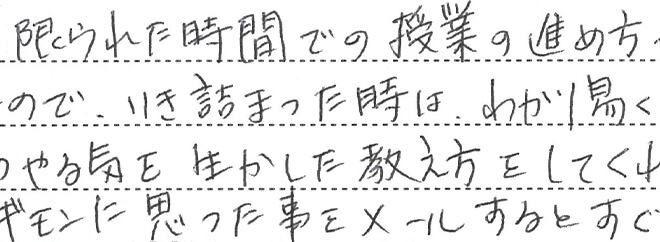 限られた時間での授業の進め方
ので、いき詰まった時は、わかり易く
やる気を生かした教え方をしてくれ
ギモンに思った事をメールするとすぐ